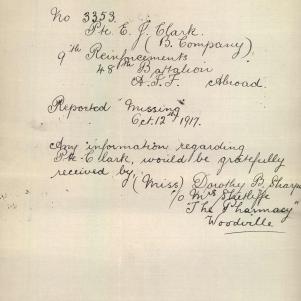 No 3353.
Pte E. J. Clark.
(B. Company)
9th Reinforcements
48th Battalion
A.I.F. Abroad.
Reported "Missing"
Oct. 12th 1917.
Any information regarding
Pte. E Clark, would be gratefully
received by,
(Miss) Dorothy B. Sharpe
c/o Mrs
"The Pharmacy"
Woodville